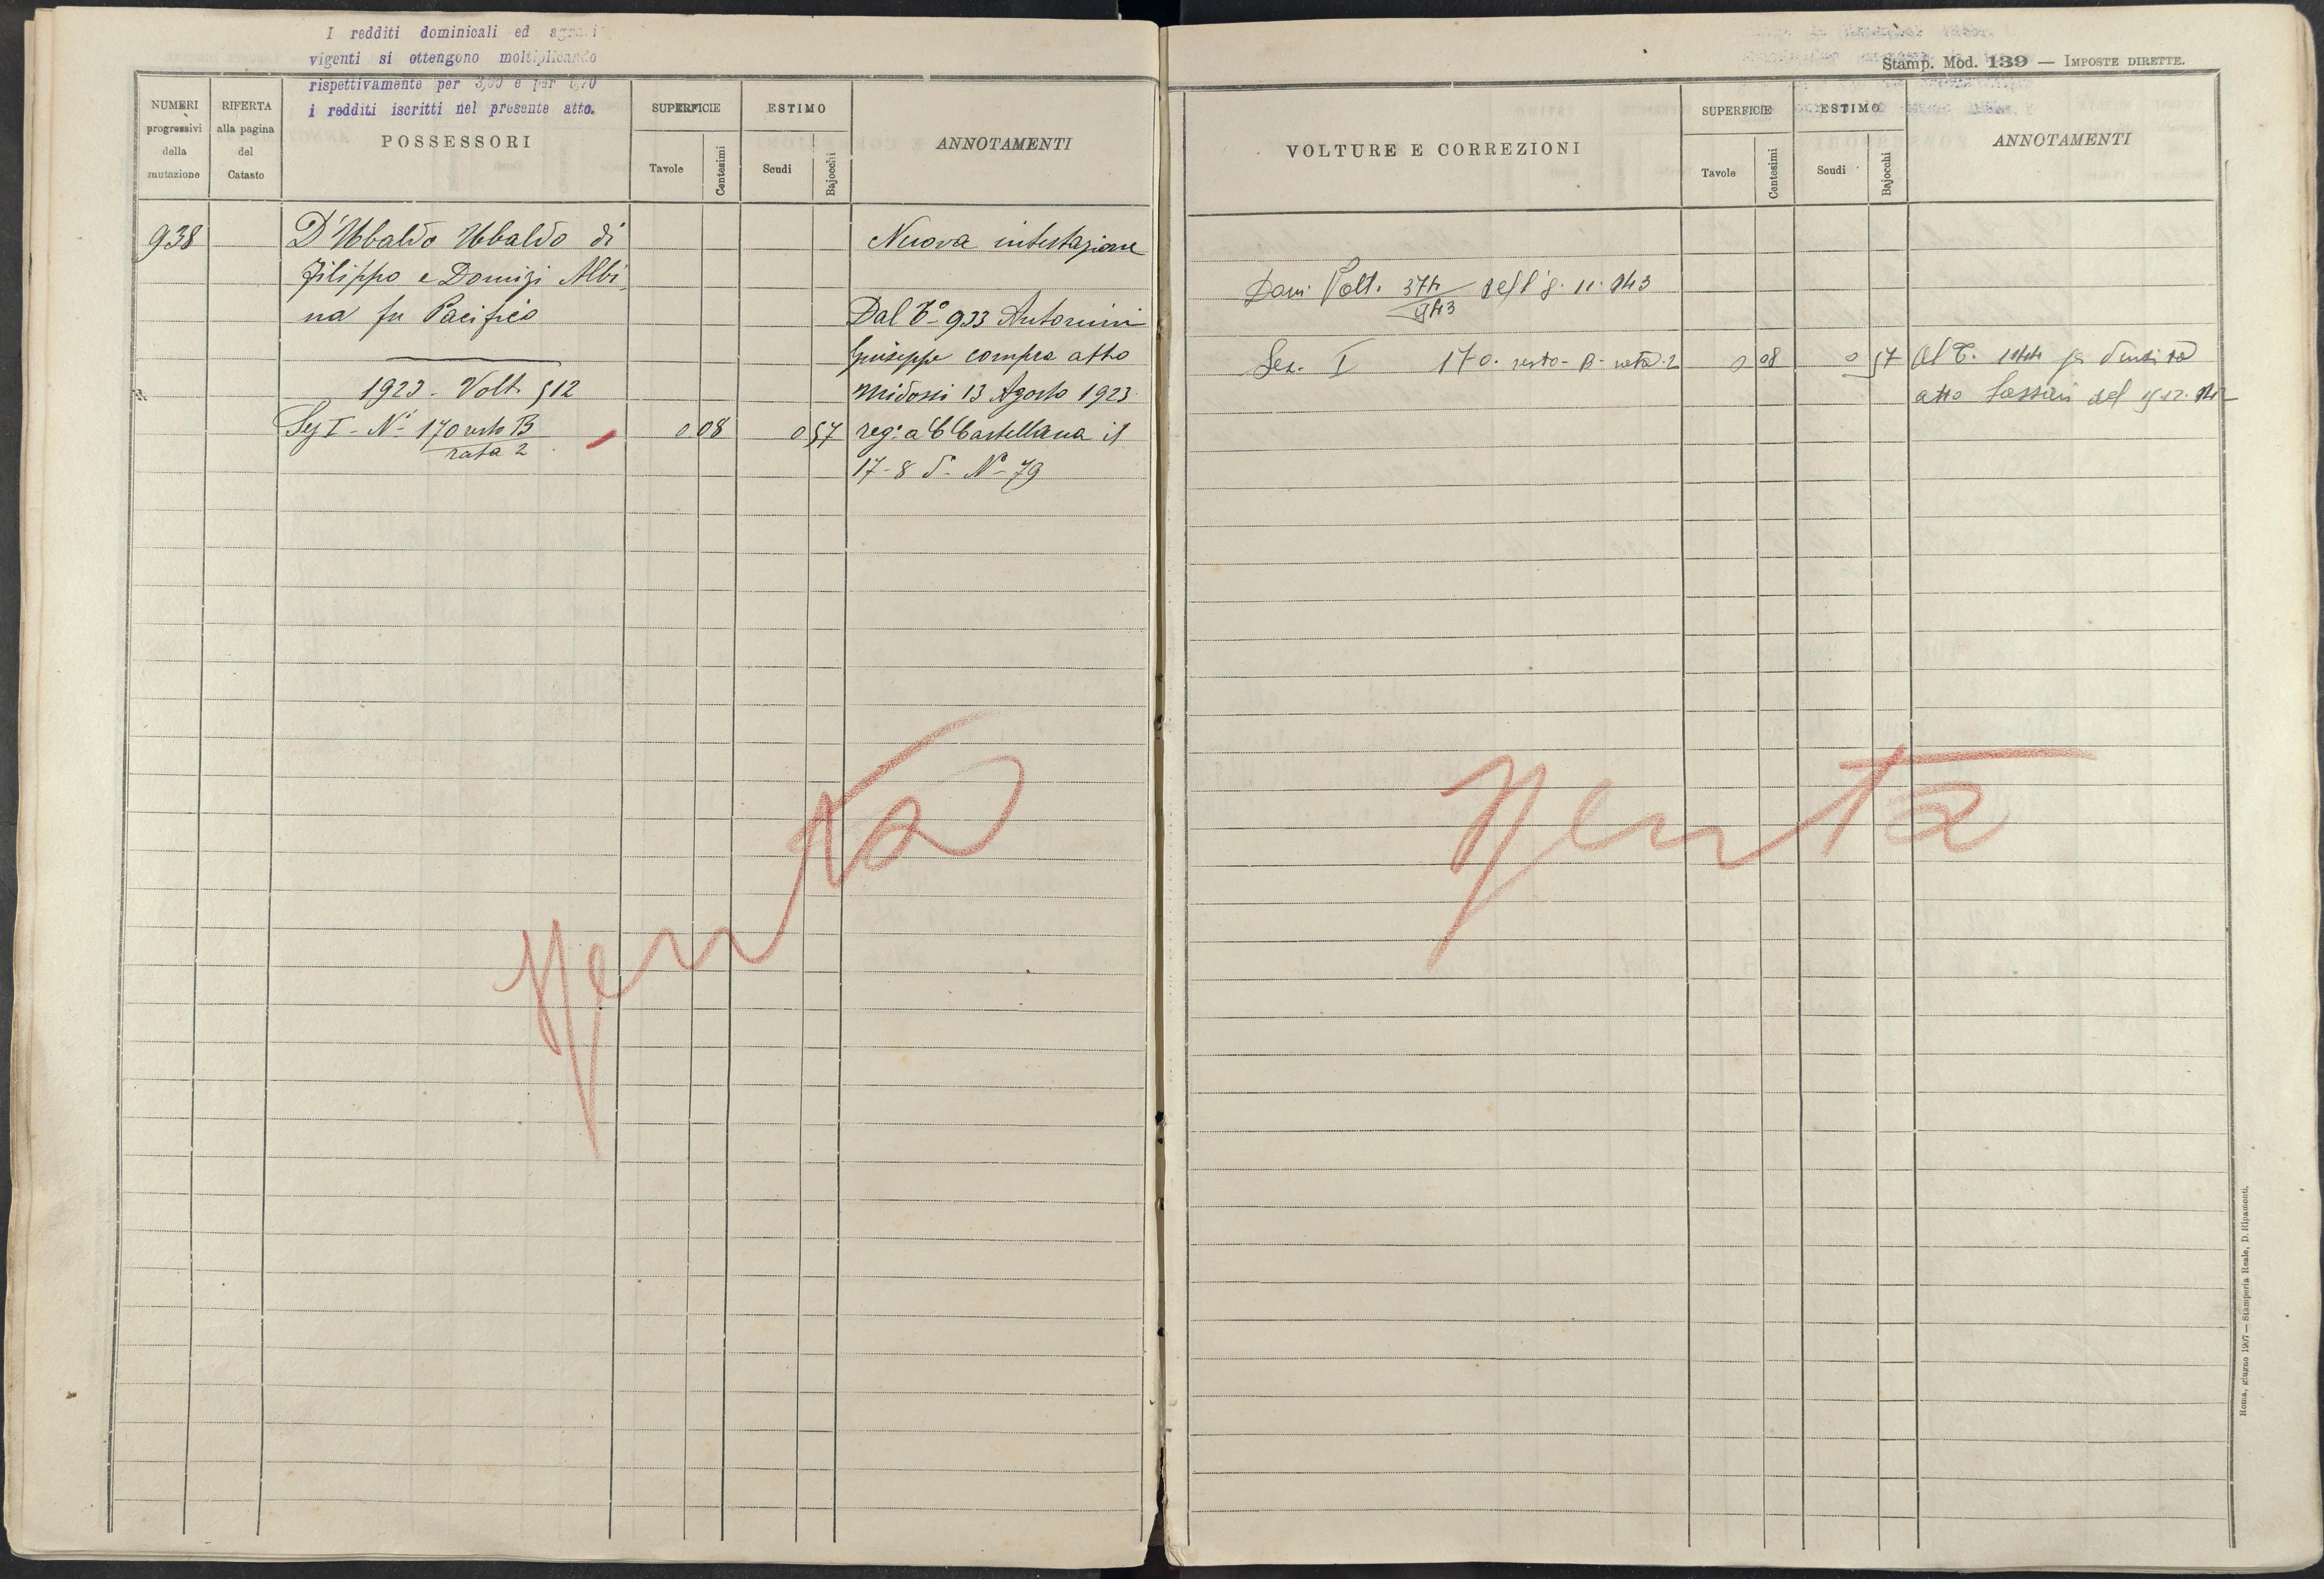 I redditi dominicali ed agrari
vigenti si ottengono moltiplicando
rispettivamente per e per
i redditi iscritti nel presente atto.
NUMERI
progressivi
della
mutazione
RIFERTA
alla pagina
del
Catasto
POSSESSORI
SUPERFICIE
Tavole
Centesimi
ESTIMO
Scudi
Bajocchi
ANNOTAMENTI
938
D'Ubaldo Ubaldo di
Filippo e Domizi Albi
na fu Pacifico
1923 - Volt. 512
Sez I - N° 170 resto B
rata 2
0 08
0 57
Nuova intestazione
Dal T° 933 Antonini
Giuseppe compra atto
Midossi 13 Agosto 1923
reg° a C Castellana il
17-8 d° N° 79
Venta
Stamp. Mod. 139 — IMPOSTE DIRETTE.
VOLTURE E CORREZIONI
SUPERFICIE
Tavole
Centesimi
ESTIMO
Scudi
Bajocchi
ANNOTAMENTI
Volt. 374 dell' 8. 11. 943
943
Sez. I 170. resto - B - rata. 2
0 08
0 57
Al T.
atto del
Venta
Roma, giugno 1907 — Stamperia Reale, D. Ripamonti.